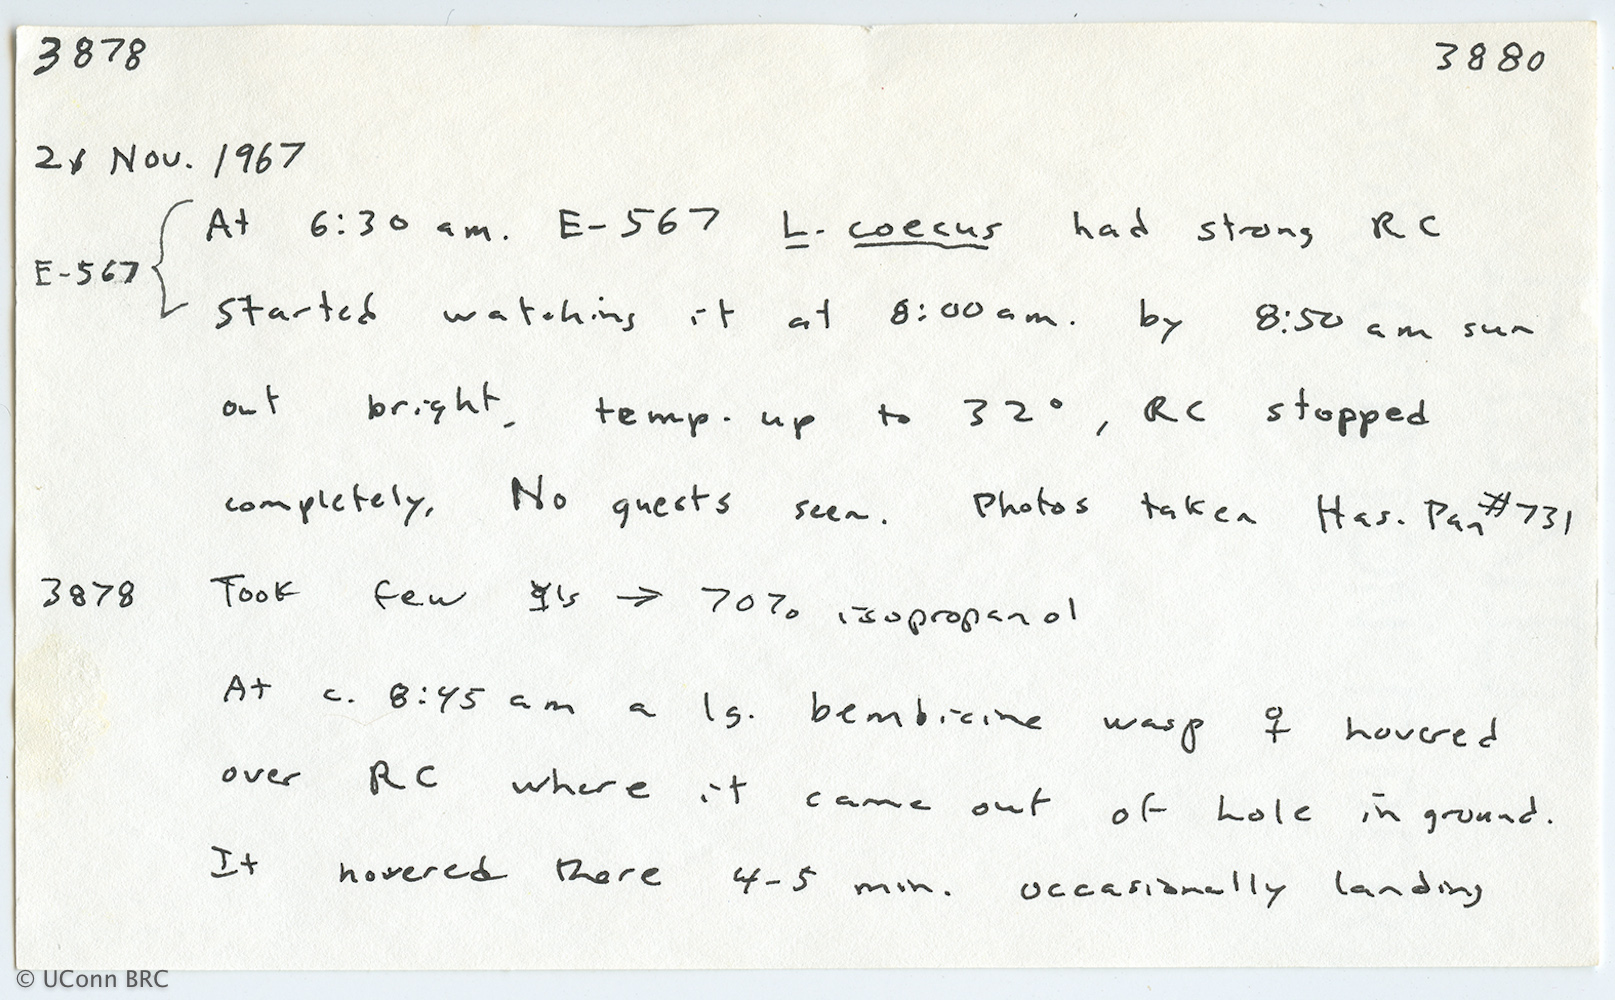 3878 3880
Nov. 1967
At 6:30 am. E-567 L. coecus had strong RC
E-567
Started watching it at 8:00 am. by 8:50 am sun
out bright, temp. up to 32°, RC stopped
completely. No guests seen. Photos taken Has. Pan #731
3878 Took few → 70% isopropanol
At c. 8:45 am a lg. bembicine wasp ♀ hovered
over RC where it came out of hole in ground.
It hovered there 4-5 min. occasionally landing
© UConn BRC